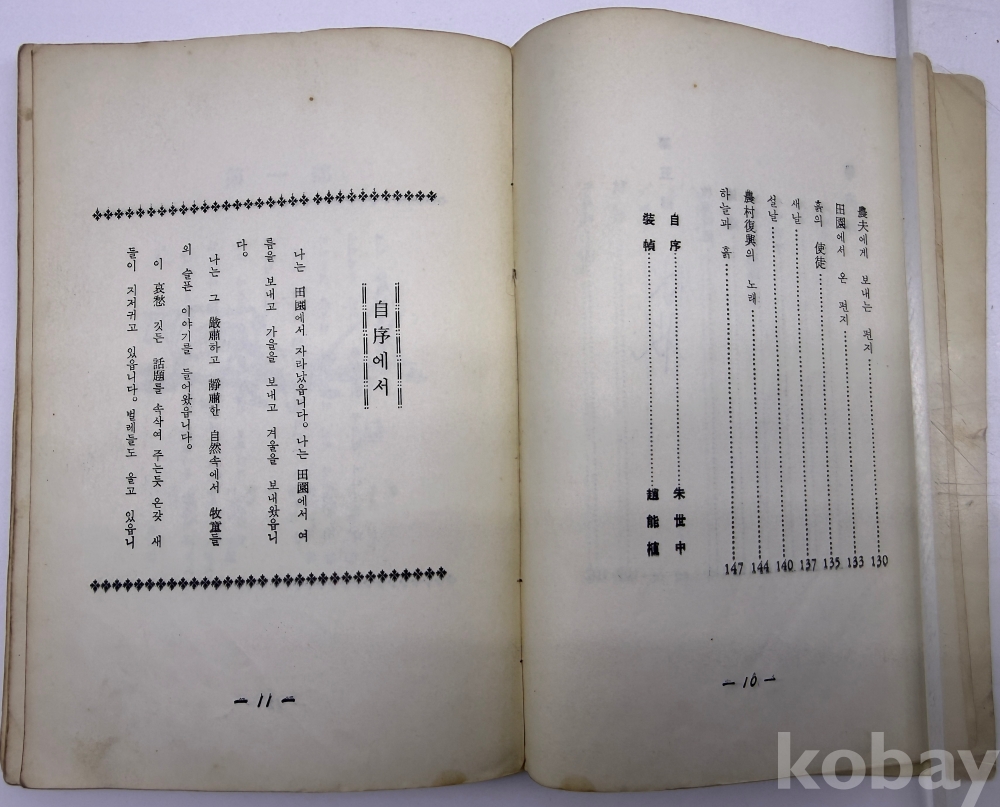 農夫에게 보내는 편지 130
田園에서 온 편지 133
흙의 使徒 135
새날 137
설날 140
農村復興의 노래 144
하늘과 흙 147
自序 朱世中
裝幀 趙能植
— 10 —
自序에서
나는 田園에서 자라났읍니다. 나는 田園에서 여
름을 보내고 가을을 보내고 겨울을 보내왔읍니
다.
나는 그 嚴肅하고 靜肅한 自然속에서 牧童들
의 슬픈 이야기를 들어왔읍니다.
이 哀愁 깃든 話題를 속삭여 주는듯 온갖 새
들이 지저귀고 있읍니다. 벌레들도 울고 있읍니
— 11 —
kobay